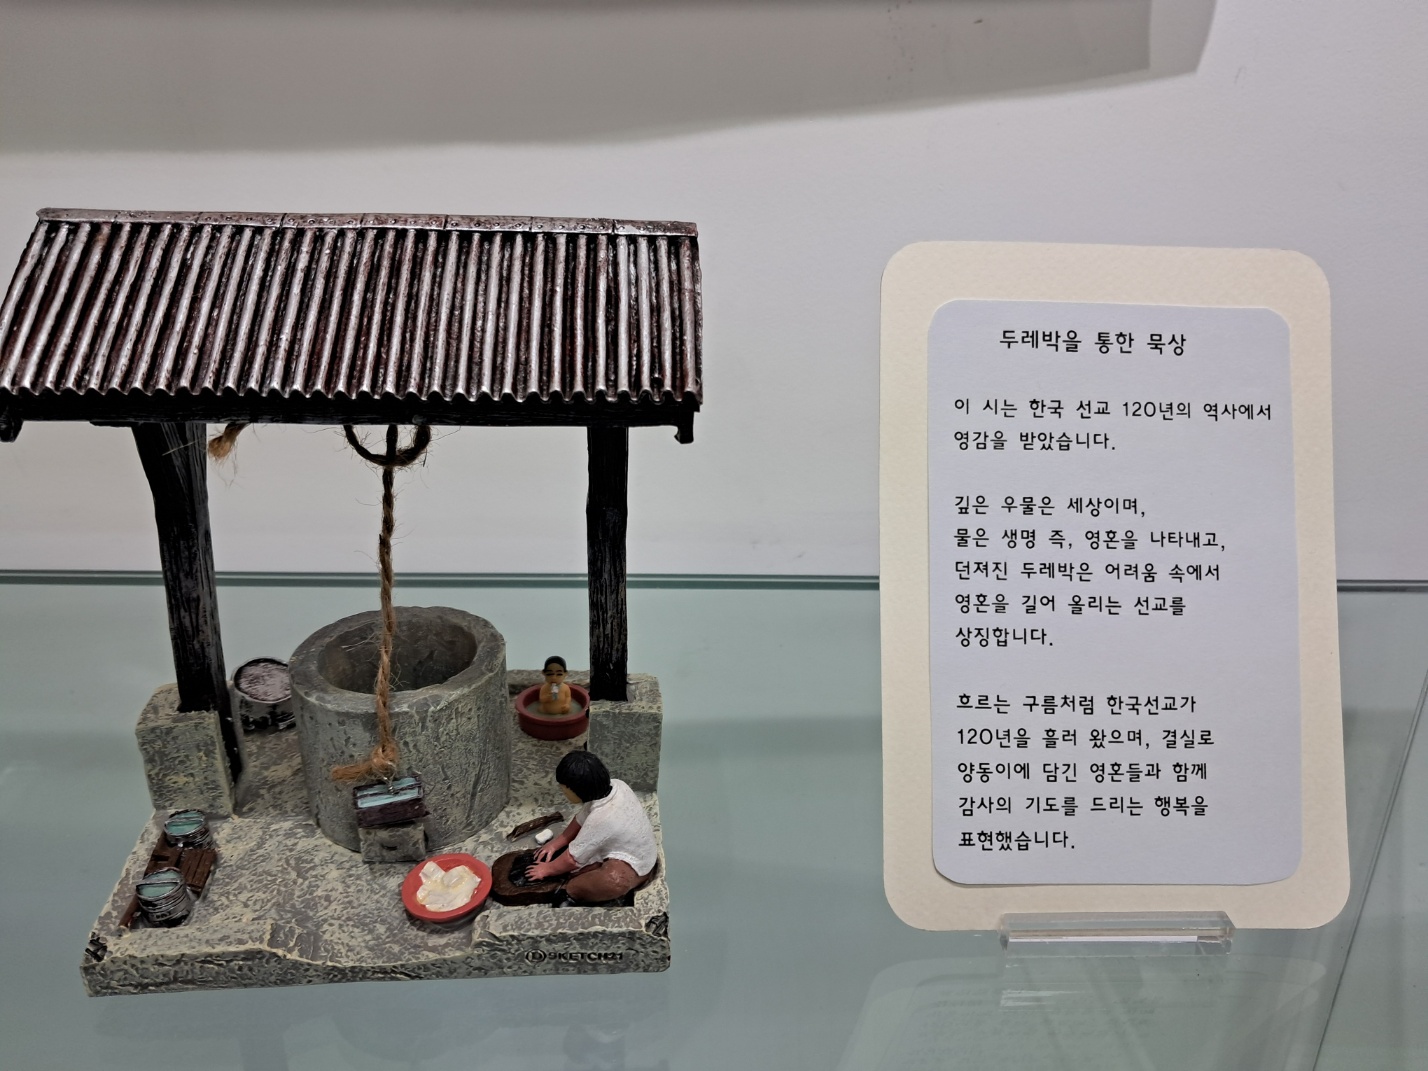 두레박을 통한 묵상
이 시는 한국 선교 120년의 역사에서
영감을 받았습니다.
깊은 우물은 세상이며,
물은 생명 즉, 영혼을 나타내고,
던져진 두레박은 어려움 속에서
영혼을 길어 올리는 선교를
상징합니다.
흐르는 구름처럼 한국선교가
120년을 흘러 왔으며, 결실로
양동이에 담긴 영혼들과 함께
감사의 기도를 드리는 행복을
표현했습니다.
Ⓓ SKETCH21